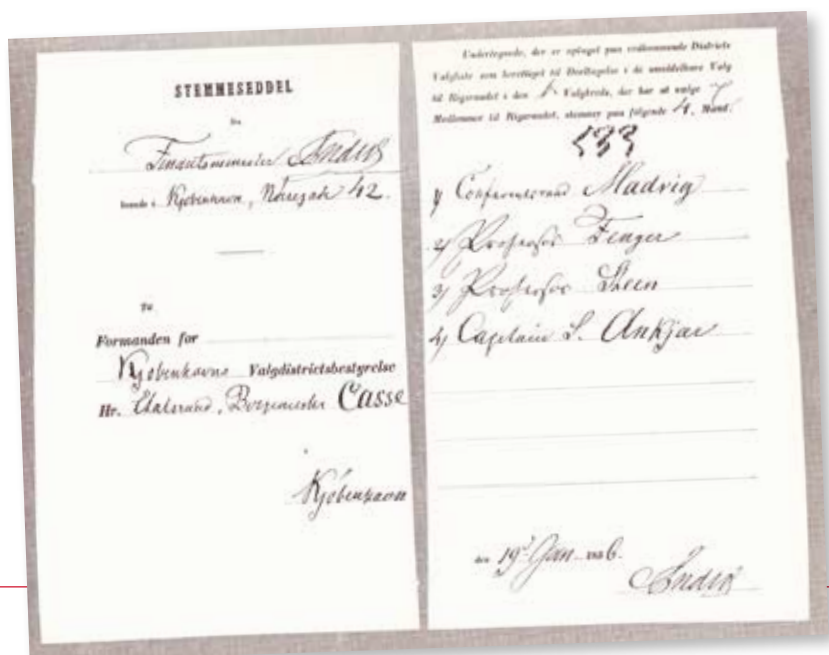 STEMMESEDDEL
fra
Finantsminister Andræ
boende i Kjøbenhavn, Nørregade 42.
Til
Formanden for
Kjøbenhavns Valgdistrictsbestyrelse
Hr. Etatsraad, Borgemester Casse
Kjøbenhavn
Undertegnede, der er optaget paa vedkommende Districts
Valgliste som berettiget til Deeltagelse i de umiddelbare Valg
til Rigsraadet i den Valgkreds, der har at vælge 7
Medlemmer til Rigsraadet, stemmer paa følgende 4, Mænd:
533
1) Conferentsraad Madvig
2) Professor Fenger
3) Professor Steen
4) Capitain S. Ankjær
den 19d Jan. 1856.
Andræ